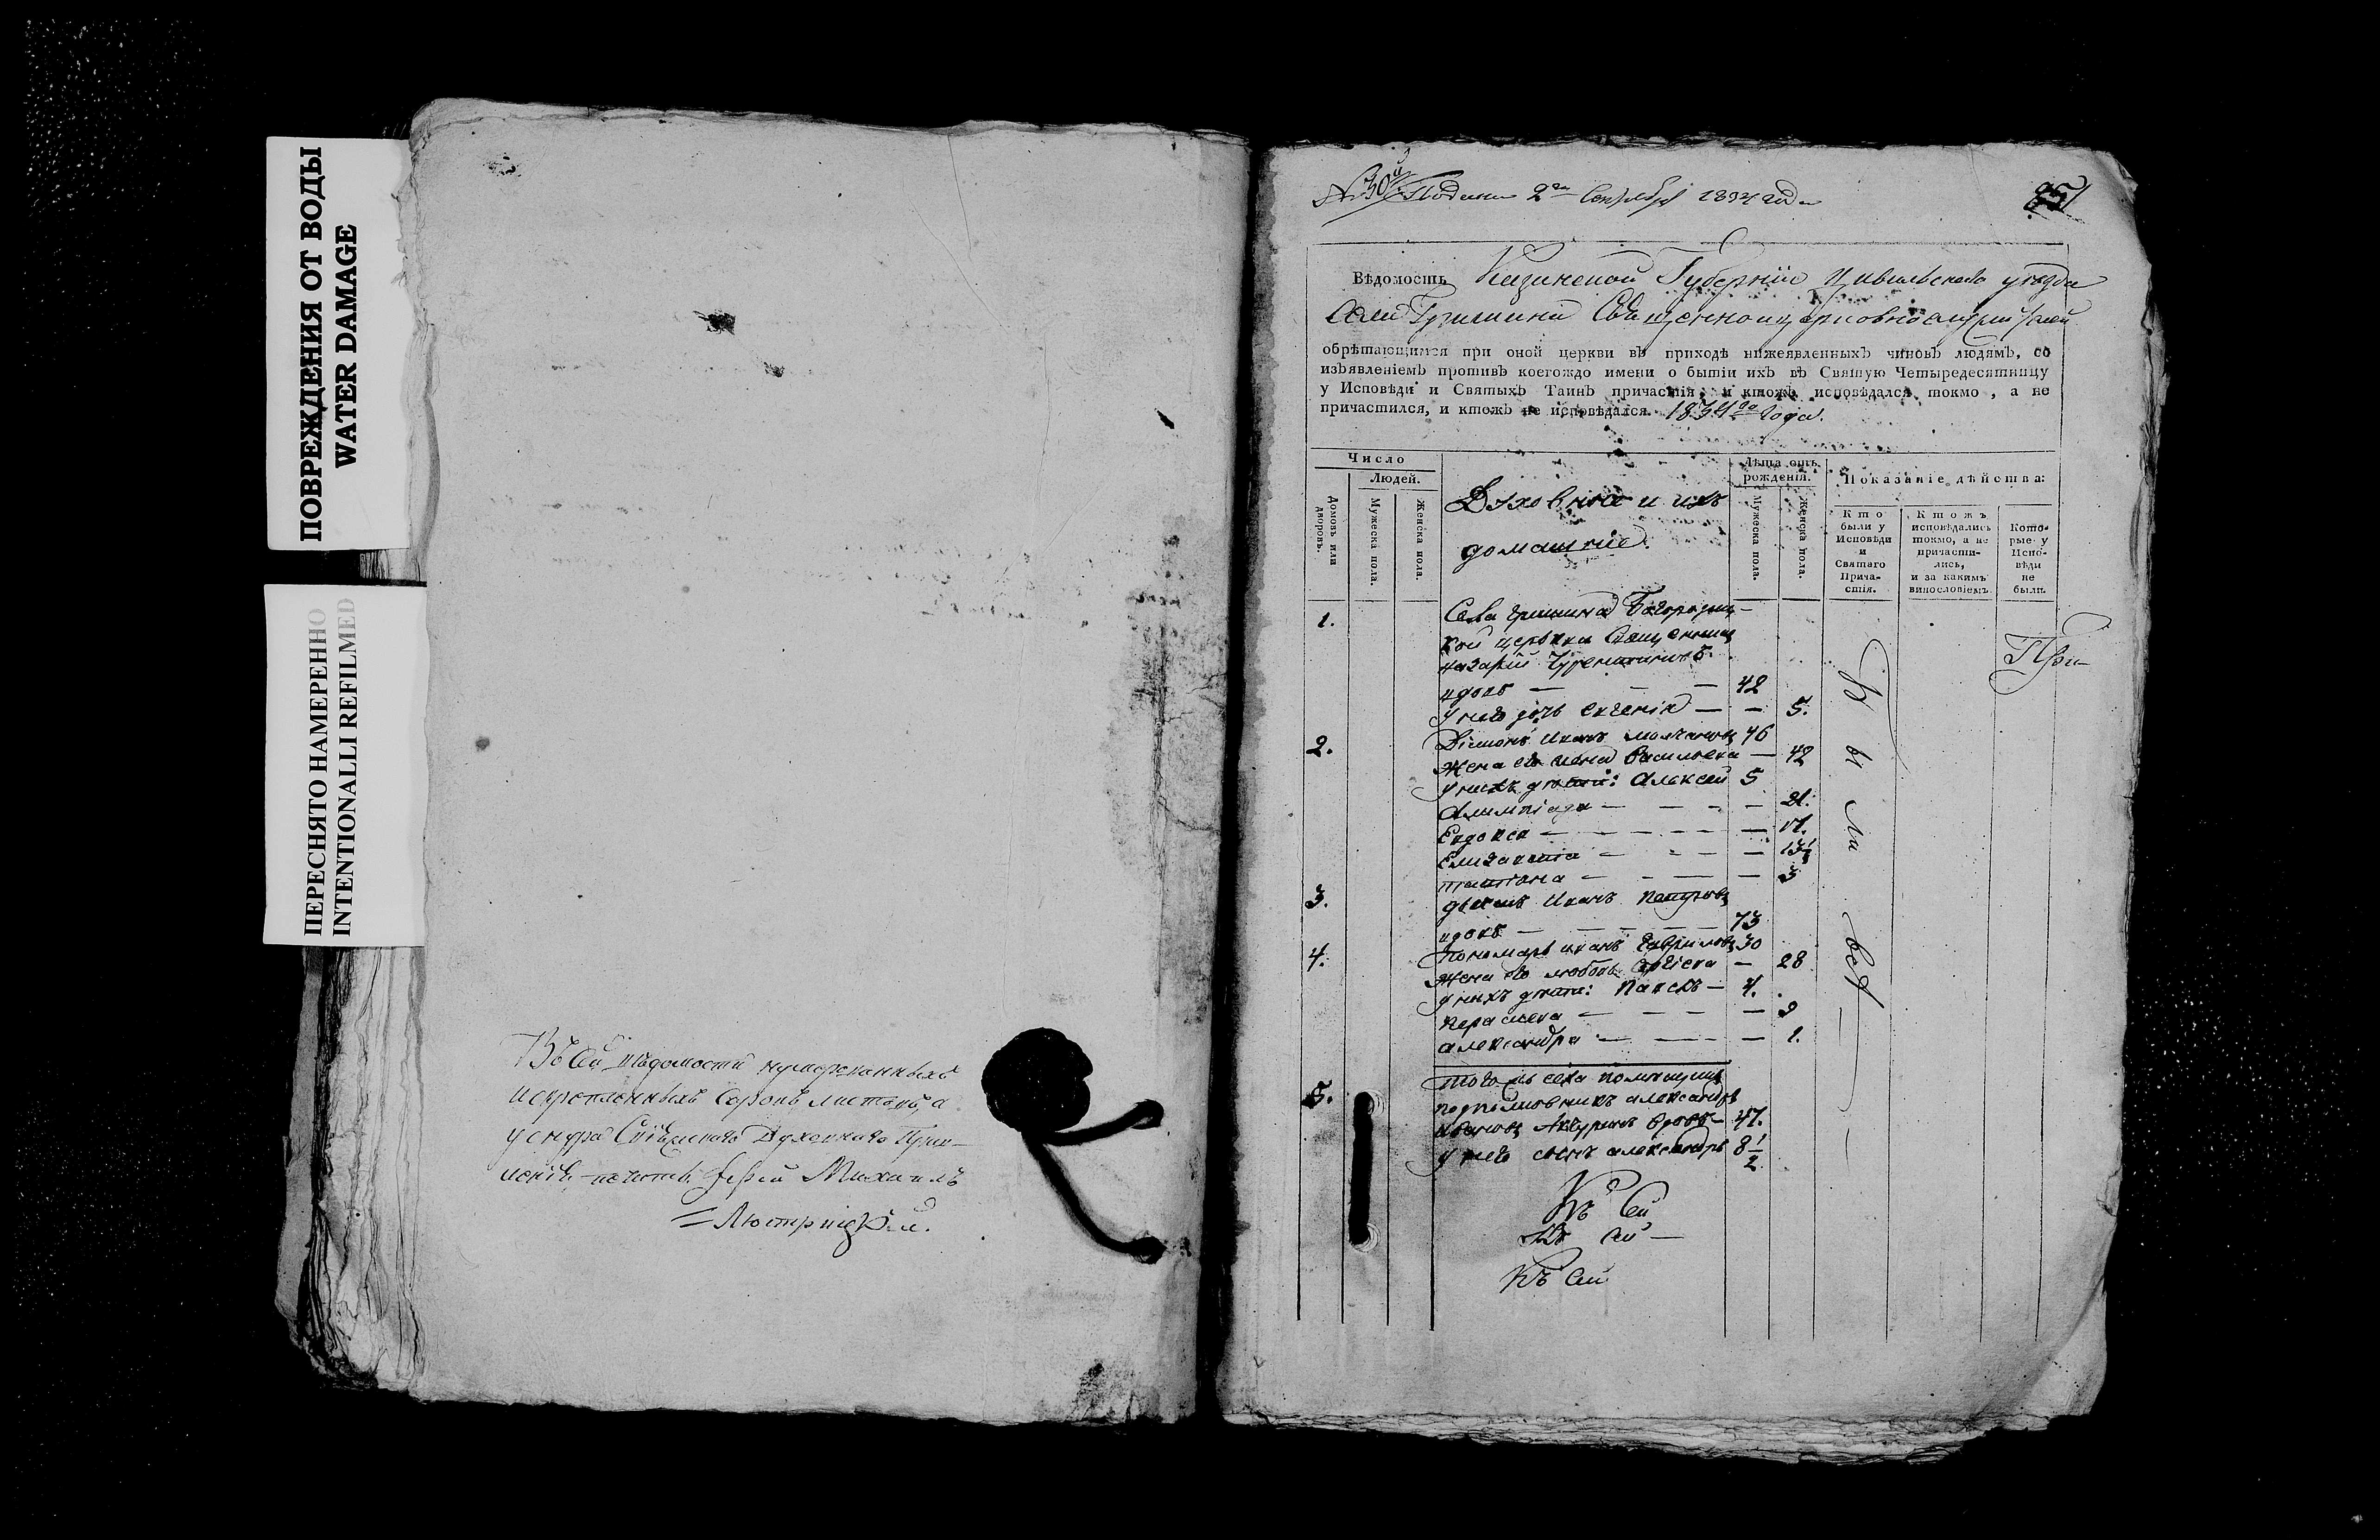 ПОВРЕЖДЕНИЯ ОТ ВОДЫ
WATER DAMAGE
ПЕРЕСНЯТО НАМЕРЕННО
INTENTIONALLI REFILMED
Въ сей ведомости нумерованныхъ
и скрепленныхъ сорокъ листовъ, а
у снура Духовнаго Прав-
ленія печать. Іерей Михаилъ
Люстрицкій.
№ 30й Подана 2го Сентября 1834 года
851
Вѣдомость Казанской Губерніи Цивильскаго уезда
Села Гришина Священноицерковнослужителей
обрѣтающимся при оной церкви въ приходѣ нижеявленныхъ чиновъ людямъ, со
изъявленіемъ противъ коегождо имени о бытіи ихъ въ Святую Четыредесятницу
у Исповѣди и Святыхъ Таинъ причастія, и ктожъ исповѣдался токмо, а не
причастился, и ктожъ не исповѣдался. 1834го Года.
Число
Людей.
Домовъ или дворовъ.
Мужеска пола.
Женска пола.
Духовные и ихъ
домашніе.
Лѣта отъ рожденія.
Мужеска пола.
Женска пола.
Показаніе дѣйства:
Кто были у Исповѣди и Святаго Прича-стія.
Ктожъ исповѣдались токмо, а не причасти-лись, и за какимъ винословіемъ.
Кото-рые у Испо-вѣди не были.
1. Села Гришина Богородиц-
кой церкви Священник
Назарій
вдовъ — — 42
у него дочь Евгенія — — 5.
2. Діаконъ Иванъ 46
Жена его Васильева — 42
у нихъ дети: Алексей 5
Алимпіада — — — 21.
Евдокса — — — — 17.
Елизавета — — — — 13½
Татіана — — — — 3
3. дьячекъ Иванъ Петровъ
вдовъ — — — 73
4. Пономарь Иванъ Гавриловъ 30
жена его любовь — 28
у нихъ дети: Павелъ — 4.
Парасьева — — — 9
александра — — — 1.
5. Тогожъ села помещикъ
подполковникъ александръ
Ивановъ вдовъ — 47.
у него сынъ александръ 8½
Были все
При-
Къ Сей
Къ Сей —
Къ Сей